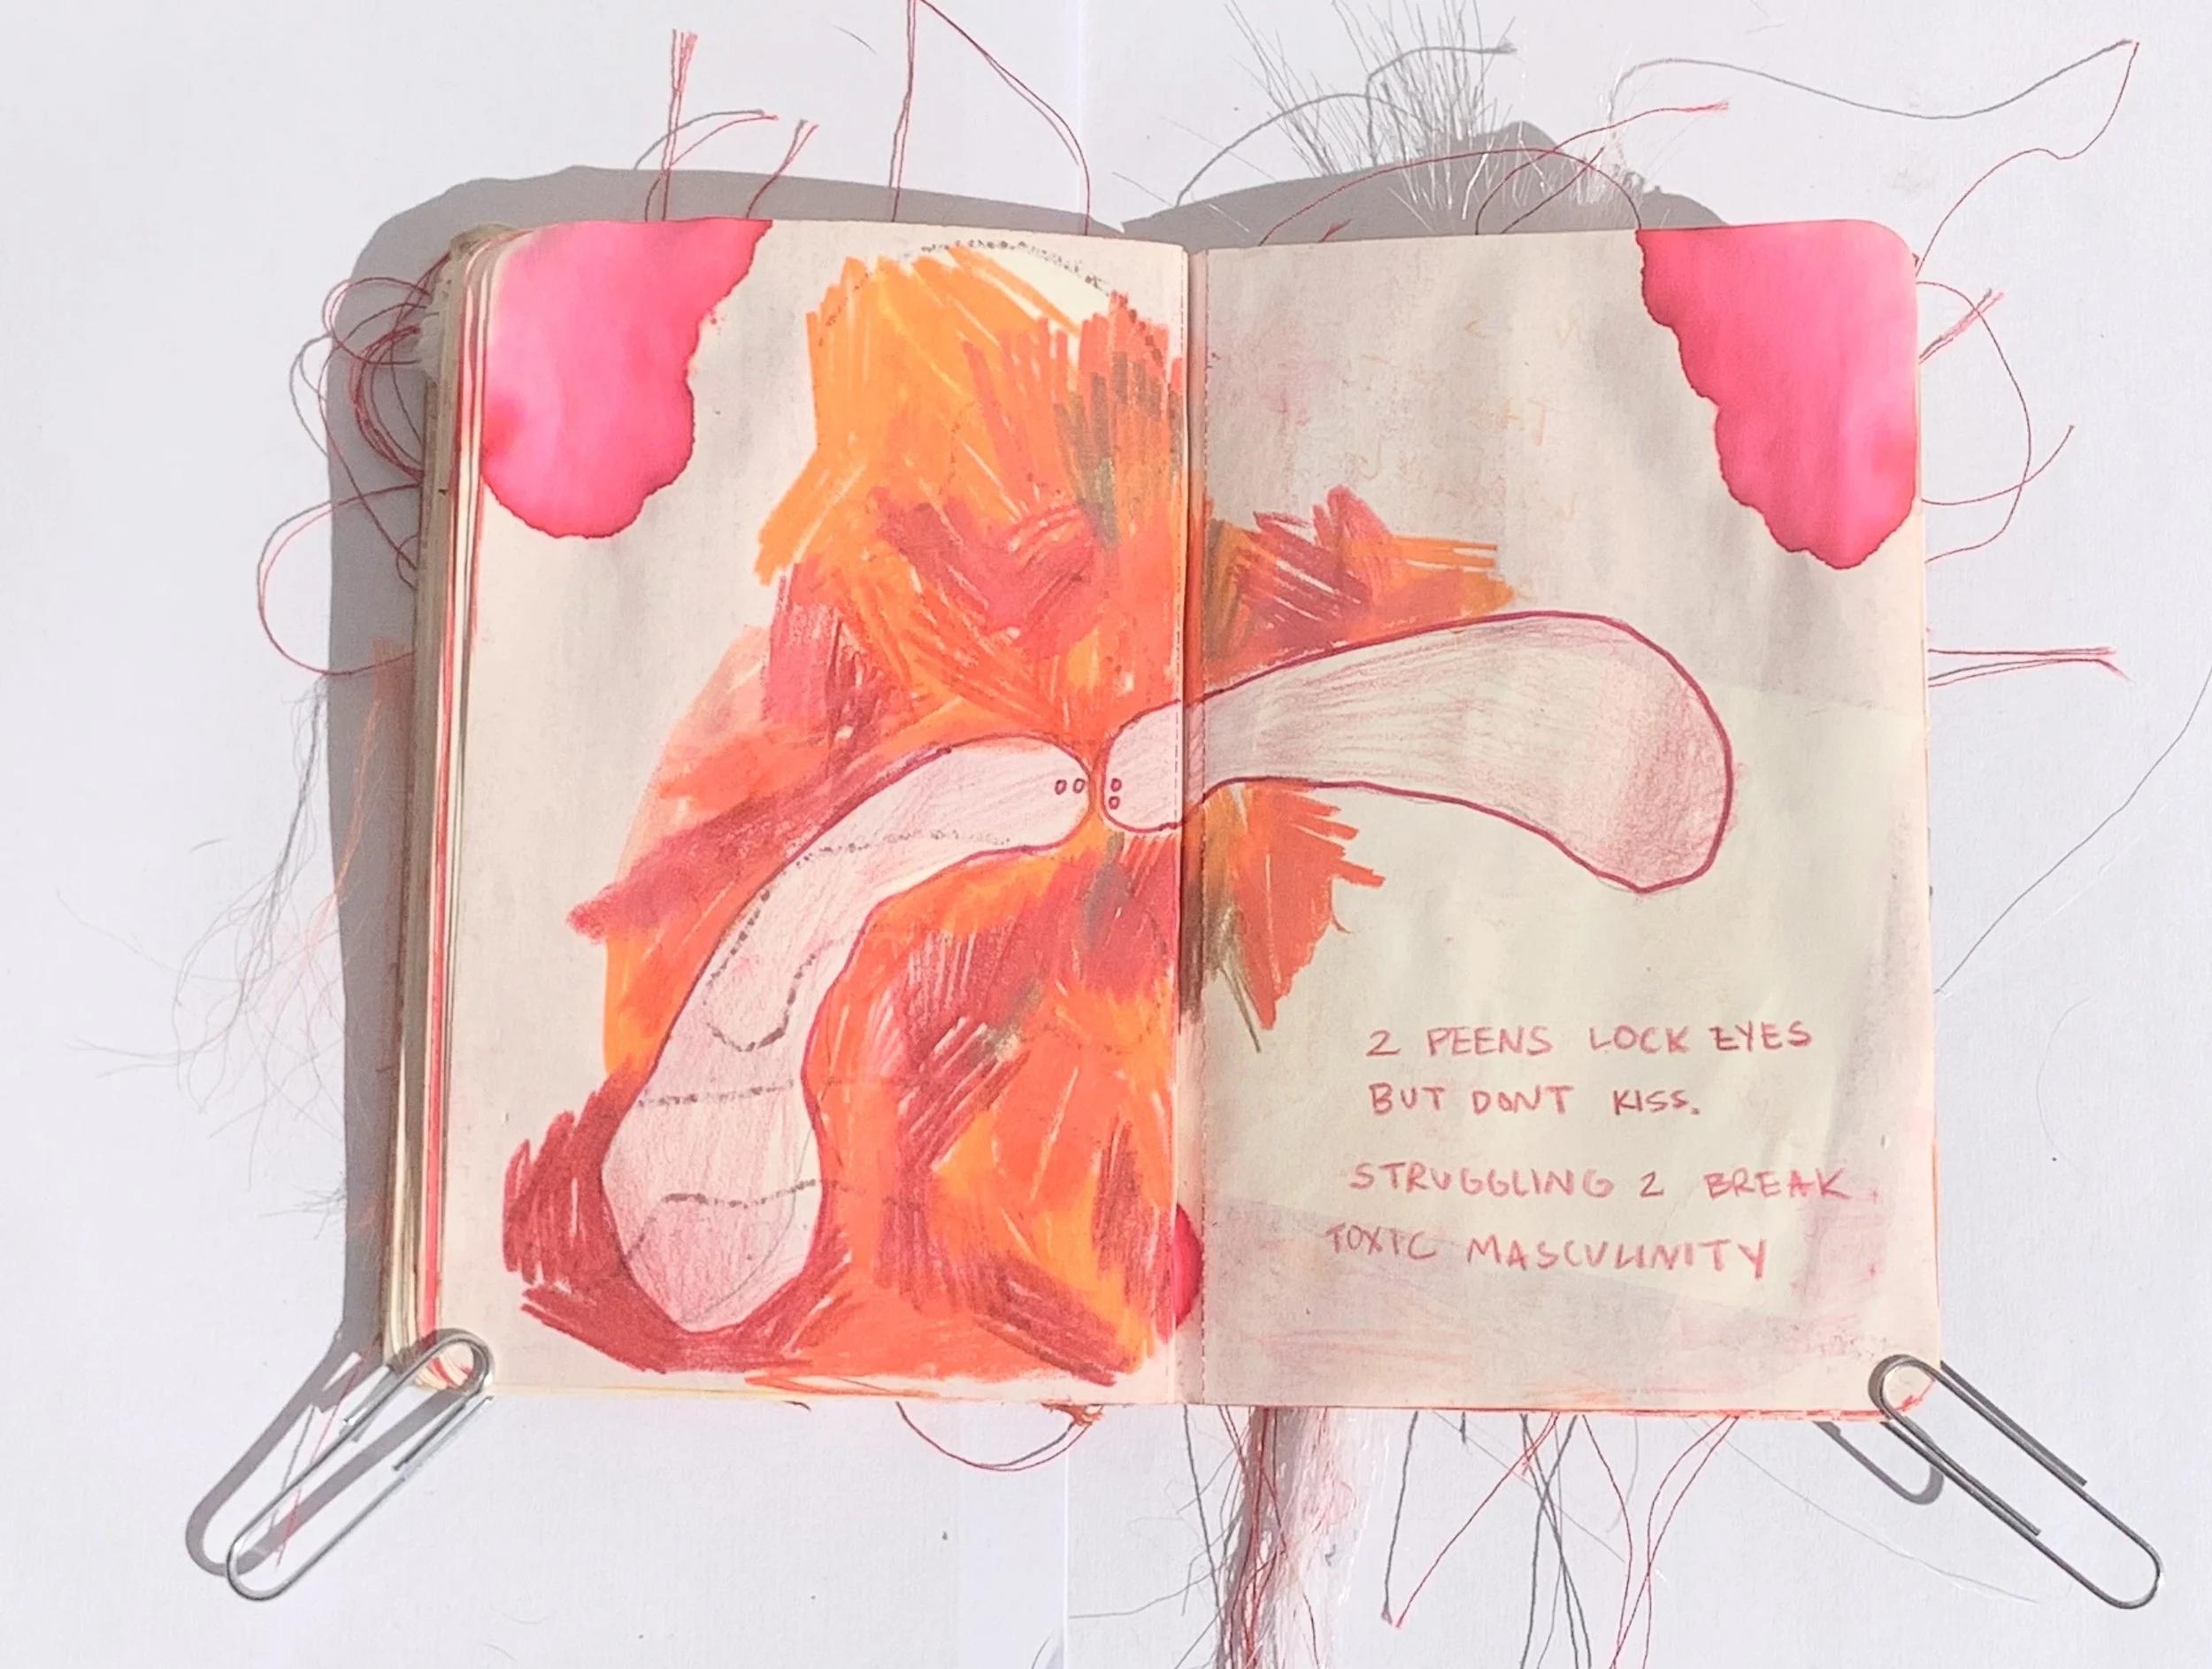 2 PEENS LOCK EYES
BUT DONT KISS.
STRUGGLING 2 BREAK
TOXIC MASCULINITY